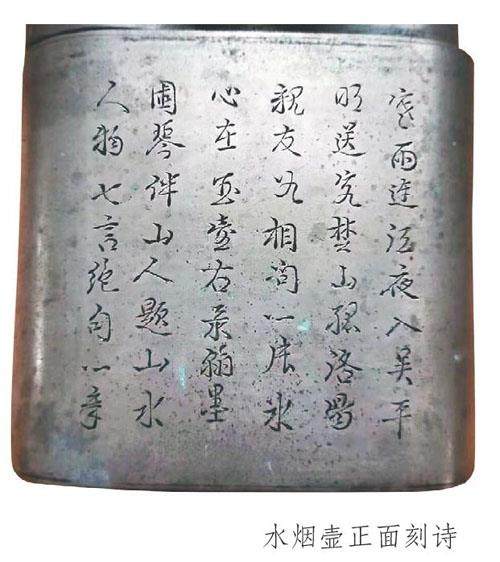 寒雨連江夜入吴平
明送客楚山孤洛陽
親友如相问一片氷
心在玉壺右录翰墨
園琴伴山人题山水
人物七言绝句一章
水烟壶正面刻诗